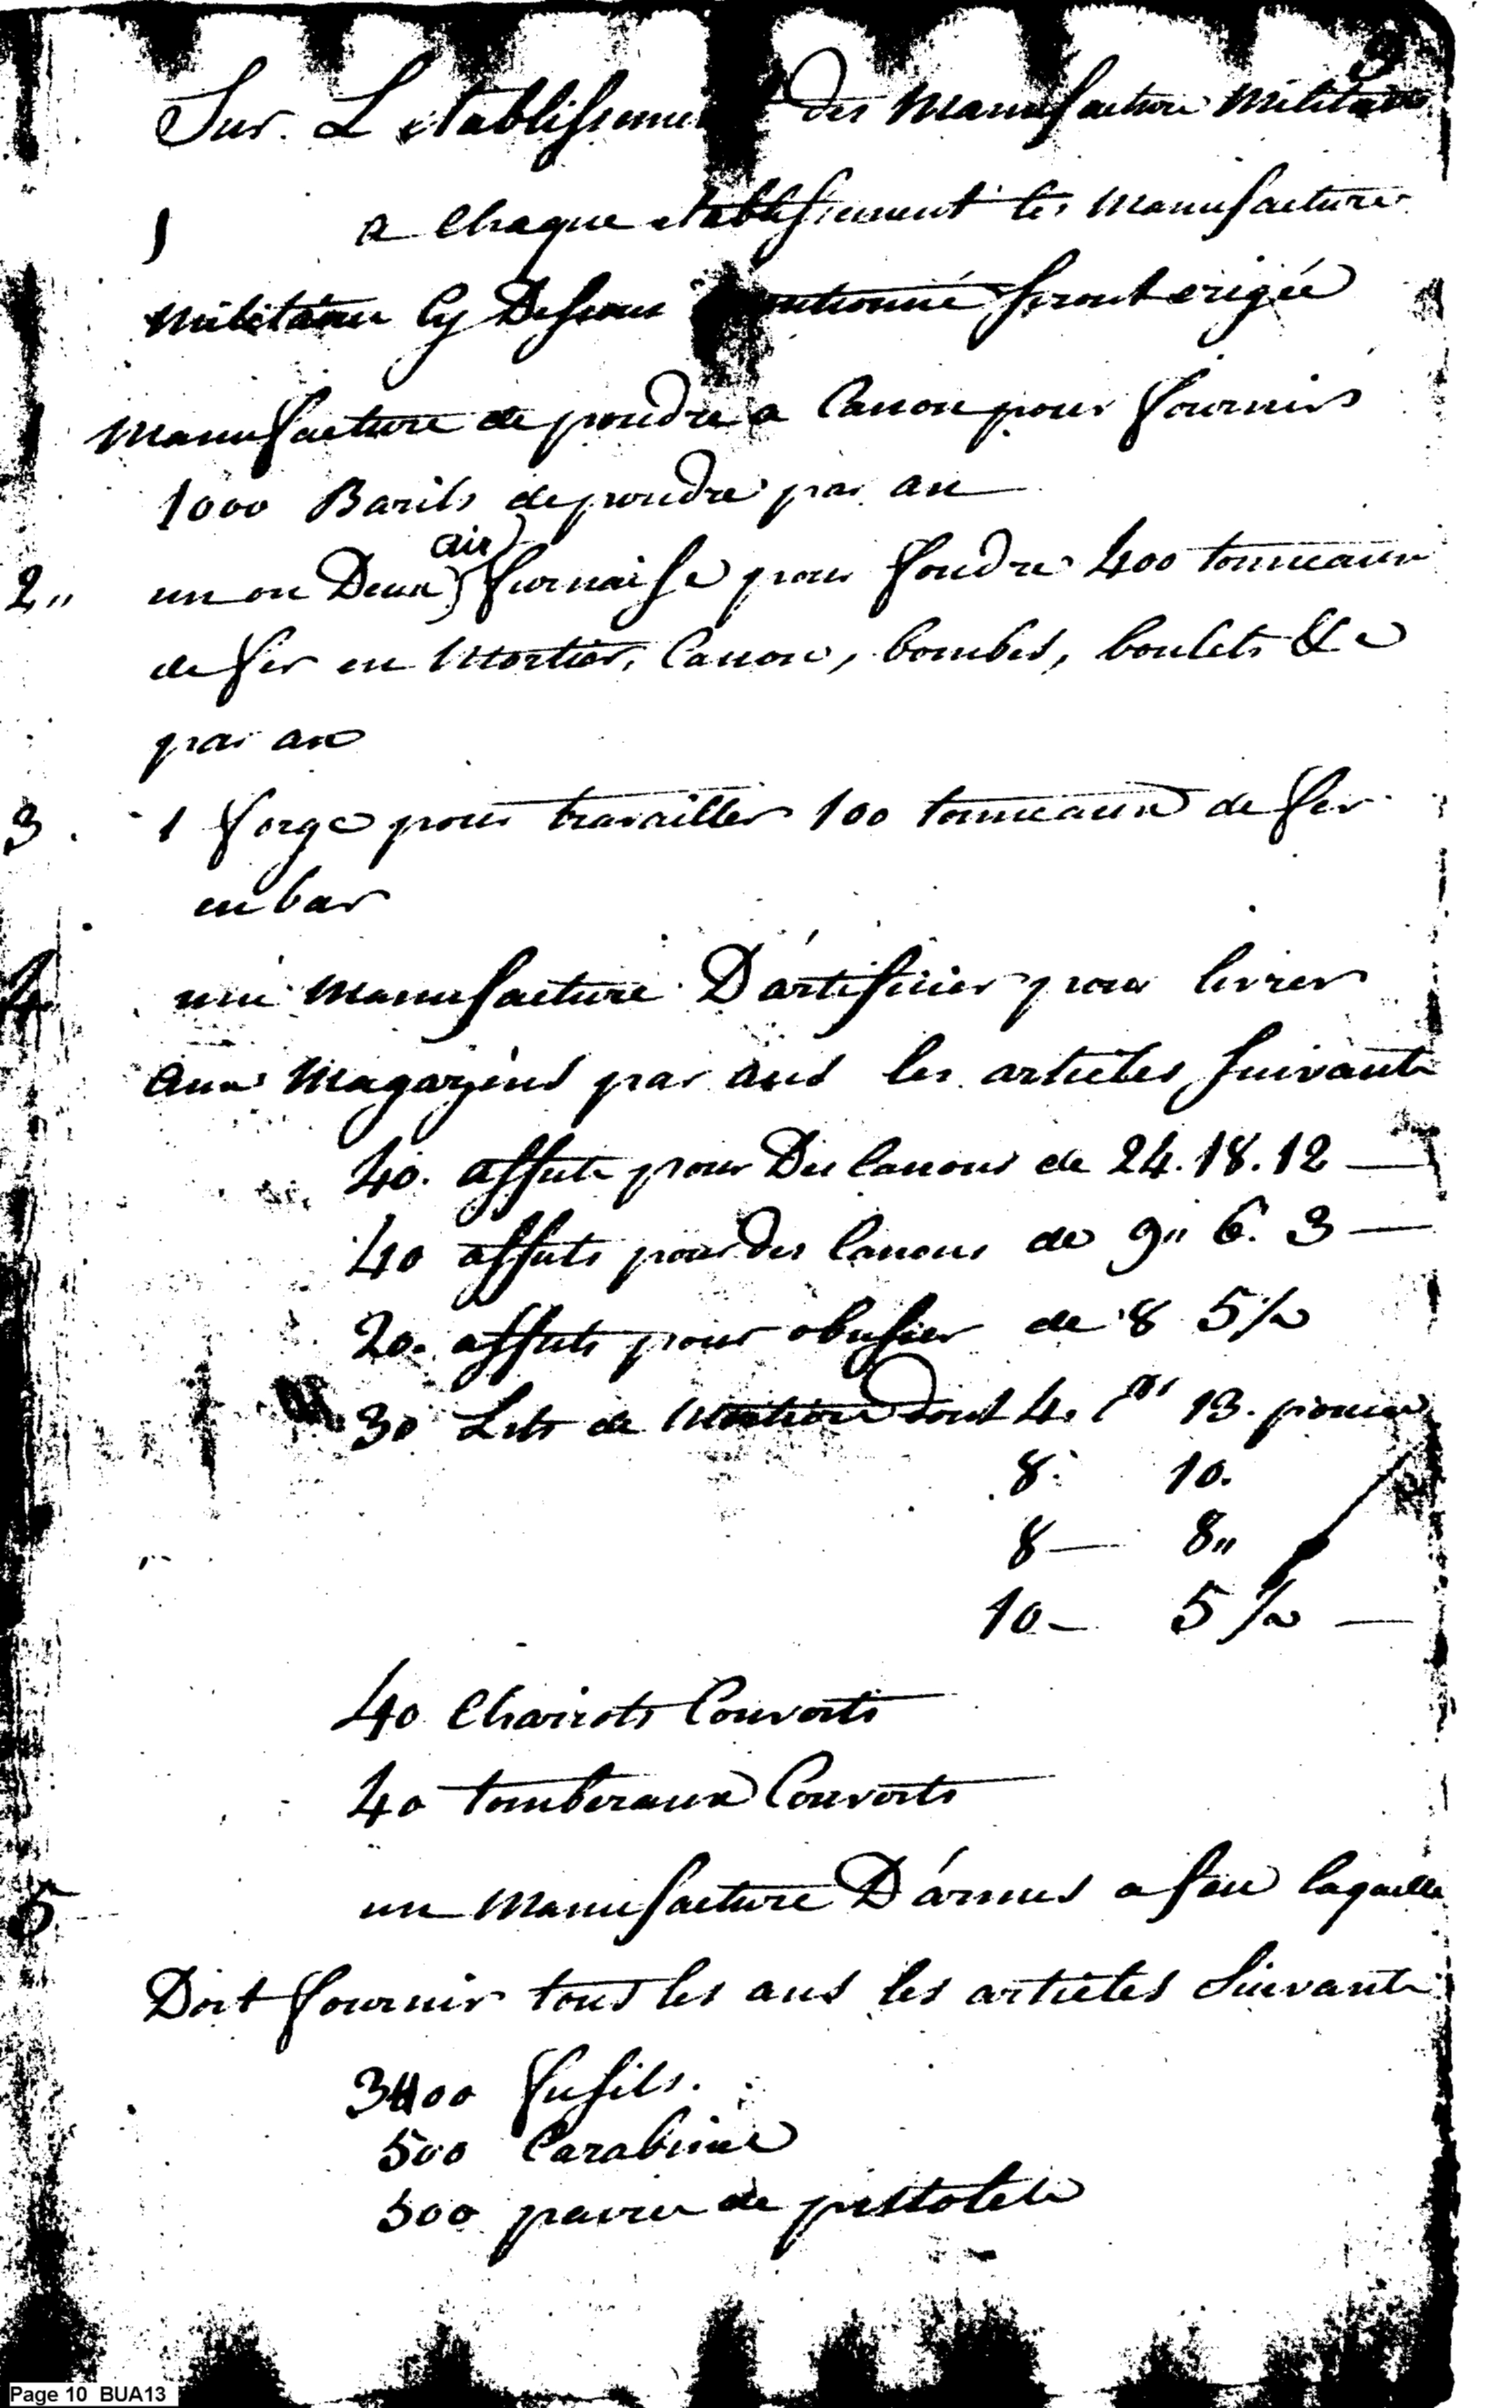 Sur. L etablissement des Manufacture Militaire
1 a Chaque etablissement les Manufacture
Militaire Cy Dessous mentionné seront erigée
Manufacture de poudre a Canon pour fournirs
1000 Barils de poudre par an
air
2,, un ou Deux furnaise pour fondre 400 tonneaux
de fer en Mortier, Canon, bombes, boulets &c
par an
3. 1 forge pour travailler 100 tonneaux de fer
en bar
4 une Manufacture D'artificier pour livrer
aux Magazins par ans les articles suivants
40. affuts pour Des Canons de 24. 18. 12 —
40 affuts pour des Canons de 9,, 6. 3 —
20. affuts pour obusier de 8 5 1/2
30 Lits de Mortiere dont 4. 13. pouces
8. 10.
8 — 8,,
10 — 5 1/2 —
40 Chairots Couverts
40 tomberaux Couverts
5 un Manufacture D'armes a feu laquelle
Doit fournir tous les ans les articles Suivants
3400 fusils.
500 Carabine
500 paires de pistolets
Page 10 BUA13